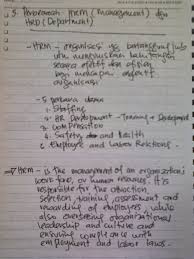 5. HRM (Management) dan
HRD (Department)
- HRM - organisasi yg
secara efektif dan efisien
organisasi
5
1. Staffing
2. HR Development - Training & Development
3. Compensation
4. Safety and Health
5. Employee and Labor Relations.
- HRM - is the management of an organization's
workforce, or human resources. It is
responsible for the attraction,
selection, training, assessment and
rewarding of employees, while
also overseeing organizational
leadership and culture and
ensuring compliance with
employment and labor laws.